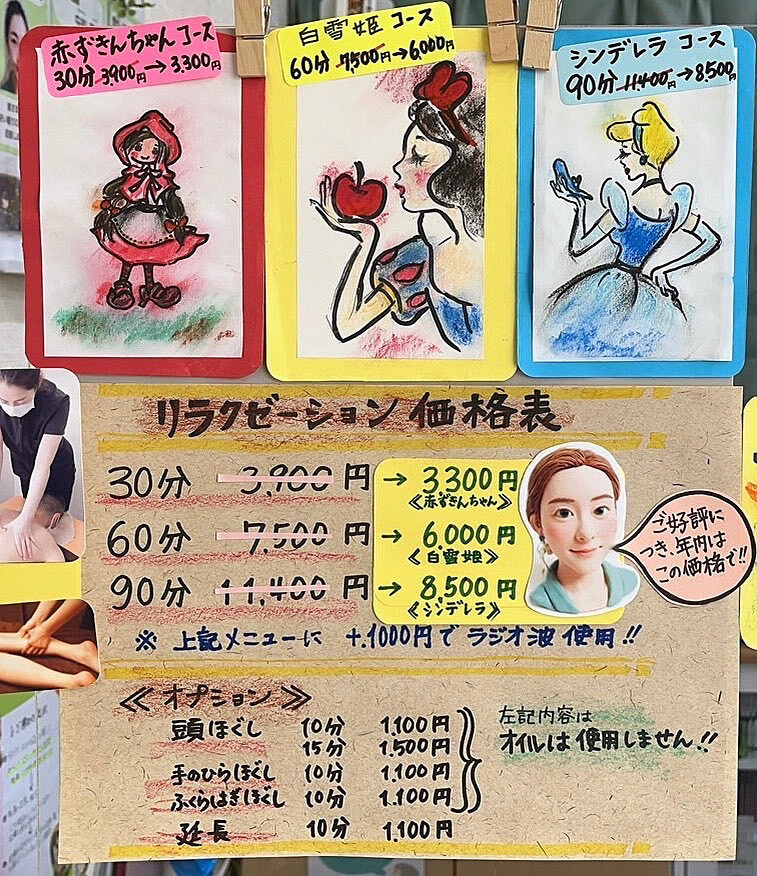 赤ずきんちゃんコース
30分 3,900円→3,300円
白雪姫 コース
60分 7,500円→6,000円
シンデレラ コース
90分 11,400円→8,500円
リラクゼーション価格表
30分 3,900円 → 3300円
《赤ずきんちゃん》
60分 7,500円 → 6,000円
《白雪姫》
90分 11,400円 → 8,500円
《シンデレラ》
ご好評に
つき、年内は
この価格で!!
※ 上記メニューに +1000円で ラジオ波 使用!!
≪オプション≫
頭ほぐし 10分 1,100円
15分 1,500円
手のひらほぐし 10分 1,100円
ふくらはぎほぐし 10分 1,100円
延長 10分 1,100円
左記内容は
オイルは使用しません!!